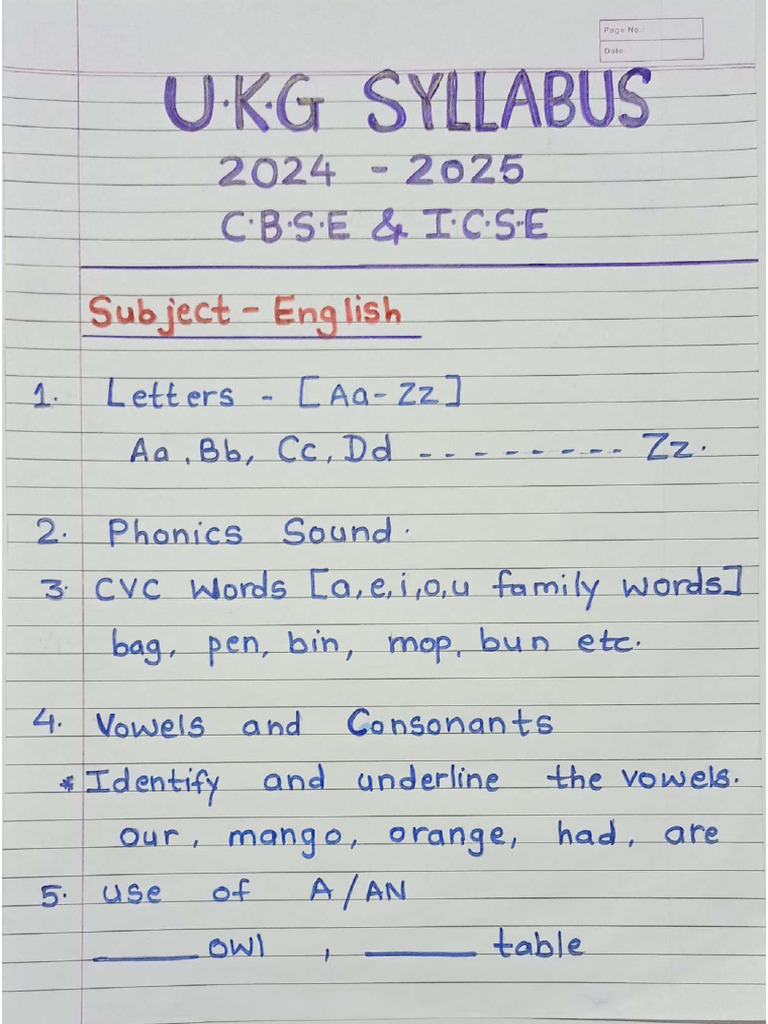 Page No.:
Date:
U.K.G SYLLABUS
2024 - 2025
C.B.S.E & I.C.S.E
Subject - English
1. Letters - [Aa - Zz]
Aa, Bb, Cc, Dd --------- Zz.
2. Phonics Sound.
3. CVC Words [a,e,i,o,u family words]
bag, pen, bin, mop, bun etc.
4. Vowels and Consonants
* Identify and underline the vowels.
our, mango, orange, had, are
5. use of A/AN
______ owl , ______ table